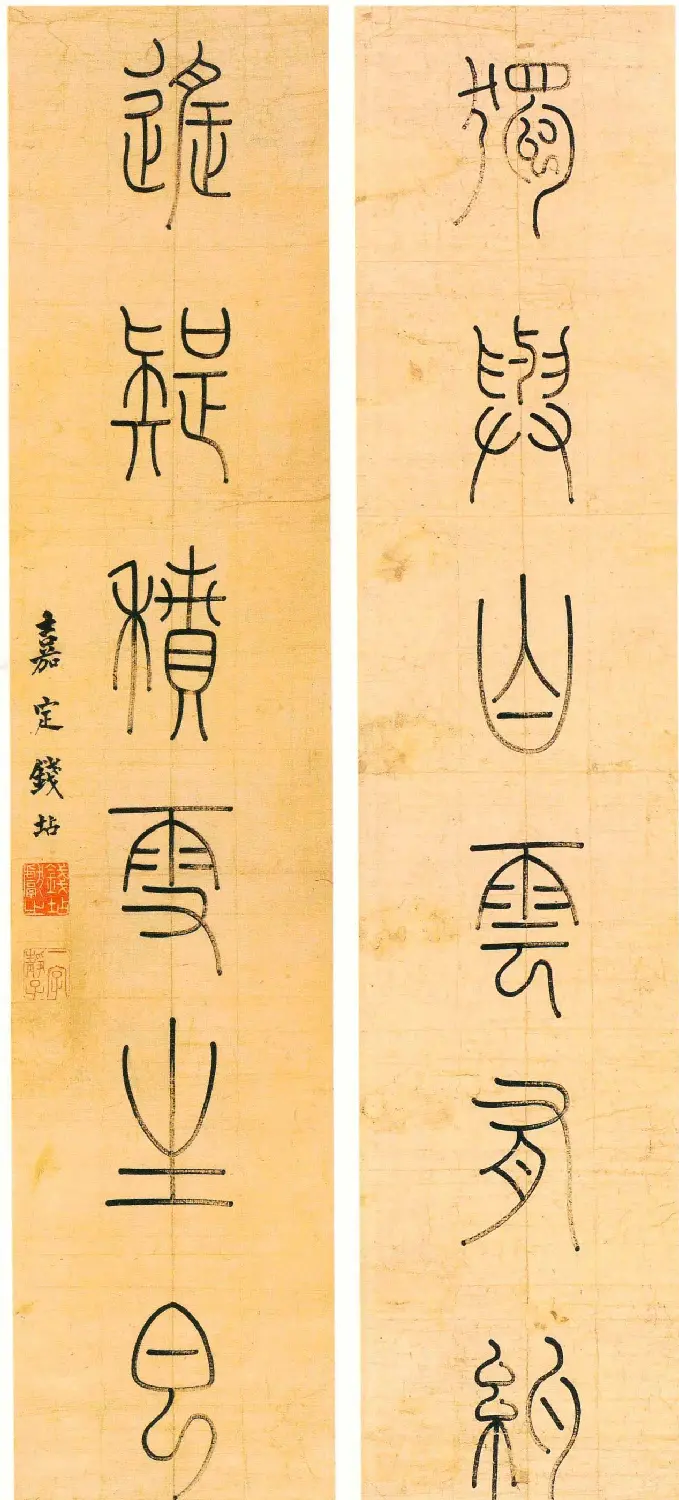 獨與山雲有約
遙疑積雪生
嘉定錢坫
錢坫